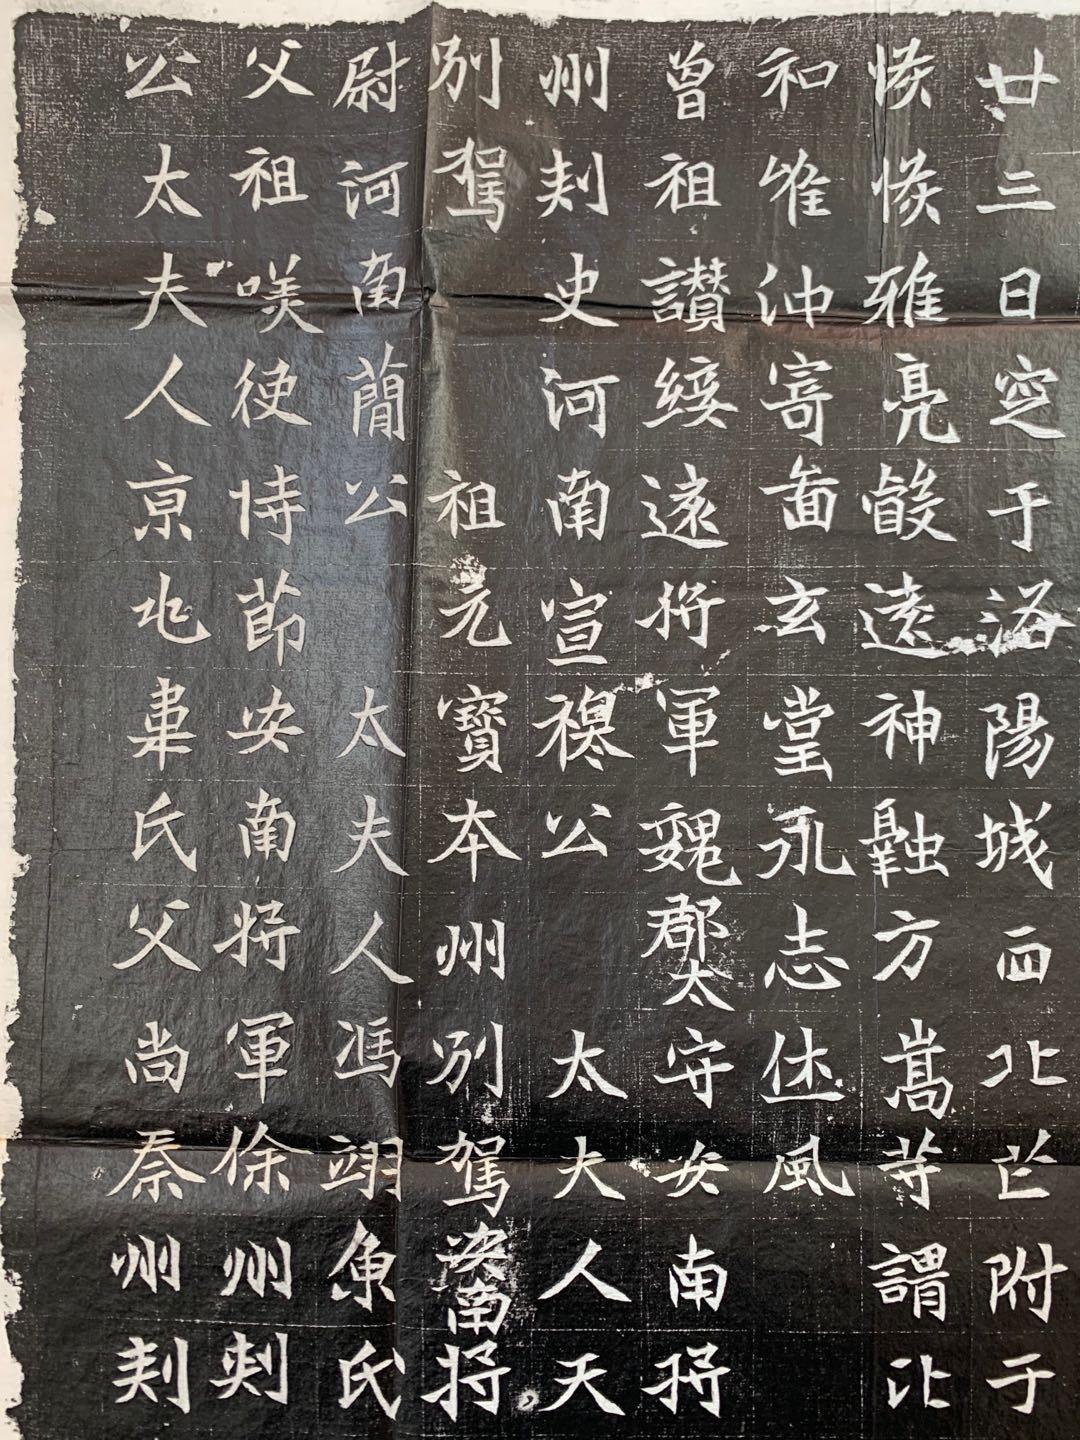 廿三日窆于洛陽城西北芒附于
悠悠雅亮毅遠神融方嵩等謂比
和唯沖寄啚玄堂永志休風
曾祖讃綏遠将軍魏郡太守安南将
州刾史河南宣穆公 太夫人天
別駕 祖元寶本州別駕安南将
尉河南蕳公 太夫人馮翊魚氏
父祖咲使侍節安南将軍徐州刾
公太夫人京兆韋氏父尚秦州刾